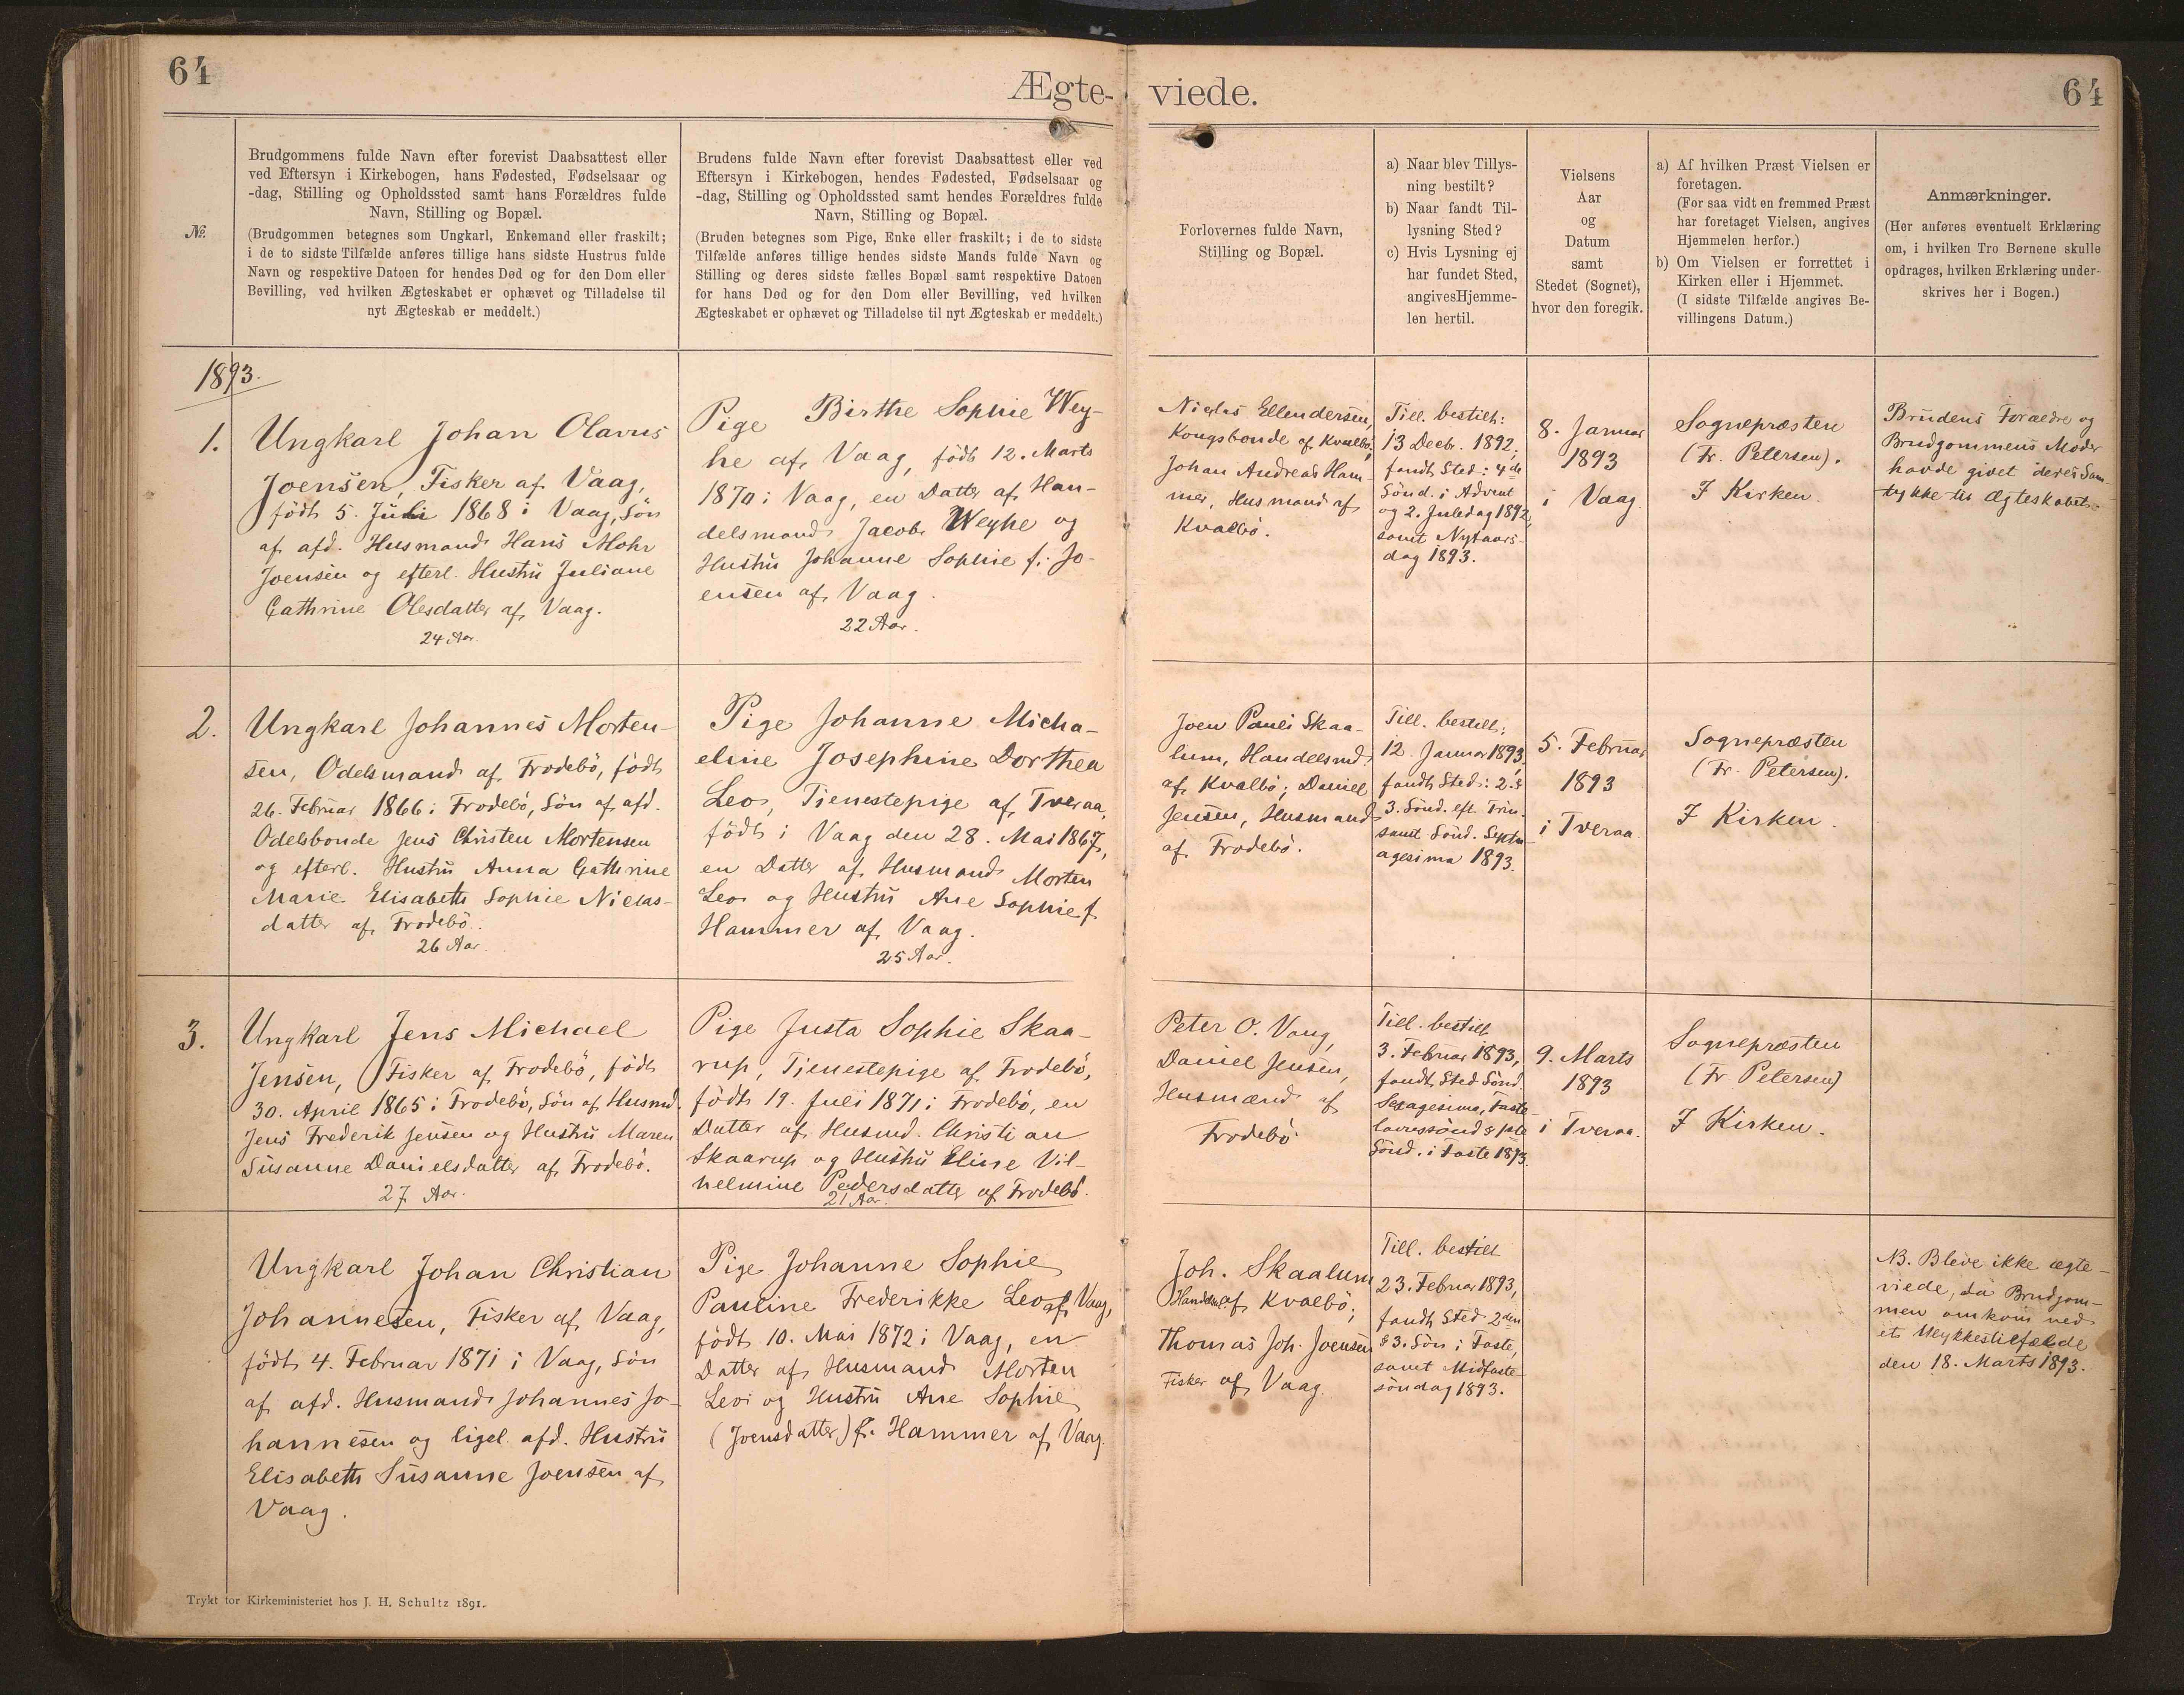 64
Ægte-
viede.
64
№.
Brudgommens fulde Navn efter forevist Daabsattest eller
ved Eftersyn i Kirkebogen, hans Fødested, Fødselsaar og
-dag, Stilling og Opholdssted samt hans Forældres fulde
Navn, Stilling og Bopæl.
(Brudgommen betegnes som Ungkarl, Enkemand eller fraskilt;
i de to sidste Tilfælde anføres tillige hans sidste Hustrus fulde
Navn og respektive Datoen for hendes Død og for den Dom eller
Bevilling, ved hvilken Ægteskabet er ophævet og Tilladelse til
nyt Ægteskab er meddelt.)
Brudens fulde Navn efter forevist Daabsattest eller ved
Eftersyn i Kirkebogen, hendes Fødested, Fødselsaar og
-dag, Stilling og Opholdssted samt hendes Forældres fulde
Navn, Stilling og Bopæl.
(Bruden betegnes som Pige, Enke eller fraskilt; i de to sidste
Tilfælde anføres tillige hendes sidste Mands fulde Navn og
Stilling og deres sidste fælles Bopæl samt respektive Datoen
for hans Død og for den Dom eller Bevilling, ved hvilken
Ægteskabet er ophævet og Tilladelse til nyt Ægteskab er meddelt.)
Forlovernes fulde Navn,
Stilling og Bopæl.
a) Naar blev Tillys-
ning bestilt?
b) Naar fandt Til-
lysning Sted?
c) Hvis Lysning ej
har fundet Sted,
angivesHjemme-
len hertil.
Vielsens
Aar
og
Datum
samt
Stedet (Sognet),
hvor den foregik.
a) Af hvilken Præst Vielsen er
foretagen.
(For saa vidt en fremmed Præst
har foretaget Vielsen, angives
Hjemmelen herfor.)
b) Om Vielsen er forrettet i
Kirken eller i Hjemmet.
(I sidste Tilfælde angives Be-
villingens Datum.)
Anmærkninger.
(Her anføres eventuelt Erklæring
om, i hvilken Tro Børnene skulle
opdrages, hvilken Erklæring under-
skrives her i Bogen.)
1893.
1.
Ungkarl Johan Olavus
Joensen, Fisker af Vaag,
født 5. Juli 1868 i Vaag, Søn
af afd. Husmand Hans Mohr
Joensen og efterl. Hustru Juliane
Cathrine Olesdatter af Vaag.
24 Aar.
Pige Birthe Sophie Wey-
he af Vaag, født 12. Marts
1870 i Vaag, en Datter af Han-
delsmand Jacob Weyhe og
Hustru Johanne Sophie f. Jo-
ensen af Vaag.
22 Aar.
Niclas Ellendersen,
Kongsbonde af Kvalbø;
Johan Andreas Ham-
mer, Husmand af
Kvalbø.
Till. bestilt:
13 Decbr. 1892;
fandt Sted: 4de
Sønd. i Advent
og 2. Juledag 1892,
samt Nytaars-
dag 1893.
8. Januar
1893
i Vaag.
Sognepræsten
(Fr. Petersen).
I Kirken.
Brudens Forældre og
Brudgommens Moder
havde givet deres Sam-
tykke til Ægteskabet.
2.
Ungkarl Johannes Morten-
sen, Odelsmand af Frodebø, født
26. Februar 1866 i Frodebø, Søn af afd.
Odelsbonde Jens Christen Mortensen
og efterl. Hustru Anna Cathrine
Marie Elisabeth Sophie Niclas-
datter af Frodebø.
26 Aar.
Pige Johanne Micha-
eline Josephine Dorthea
Leo, Tjenestepige af Tveraa,
født i Vaag den 28. Mai 1867,
en Datter af Husmand Morten
Leo og Hustru Ane Sophie f.
Hammer af Vaag.
25 Aar.
Joen Pauli Skaa-
lum, Handelsmd.
af Kvalbø; Daniel
Jensen, Husmand
af Frodebø.
Till. bestilt:
12. Januar 1893,
fandt Sted: 2. &
3. Sønd. eft.
samt Sønd. Septu-
agesima 1893.
5. Februar
1893
i Tveraa
Sognepræsten
(Fr. Petersen).
I Kirken.
3.
Ungkarl Jens Michael
Jensen, Fisker af Frodebø, født
30. April 1865 i Frodebø, Søn af Husmd.
Jens Frederik Jensen og Hustru Maren
Susanne Danielsdatter af Frodebø.
27 Aar.
Pige Justa Sophie Skaa-
rup, Tjenestepige af Frodebø,
født 19. Juli 1871 i Frodebø, en
Datter af Husmd. Christian
Skaarup og Hustru Eline Vil-
helmine Pedersdatter af Frodebø.
21 Aar.
Peter O. Vaag,
Daniel Jensen,
Husmænd af
Frodebø
Till. bestilt
3. Februar 1893,
fandt Sted Sønd.
Sexagesima, Faste-
lavnssønd & 1ste
Sønd. i Faste 1893.
9. Marts
1893
i Tveraa.
Sognepræsten
(Fr Petersen)
I Kirken.
Ungkarl Johan Christian
Johannesen, Fisker af Vaag,
født 4. Februar 1871 i Vaag, Søn
af afd. Husmand Johannes Jo-
hannesen og ligel. afd. Hustru
Elisabeth Susanne Joensen af
Vaag.
Pige Johanne Sophie
Pauline Frederikke Leo af Vaag,
født 10. Mai 1872 i Vaag, en
Datter af Husmand Morten
Leo og Hustru Ane Sophie
(Joensdatter) f. Hammer af Vaag.
Joh. Skaalum
Handelsm. af Kvalbø;
Thomas Joh. Joensen
Fisker af Vaag.
Till. bestilt
23. Februar 1893,
fandt Sted 2den
& 3. Søn i Faste,
samt Midfaste-
søndag 1893.
NB. Bleve ikke ægte-
viede, da Brudgom-
men omkom ved
et Ulykkestilfælde
den 18. Marts 1893.
Trykt for Kirkeministeriet hos J. H. Schultz 1891.